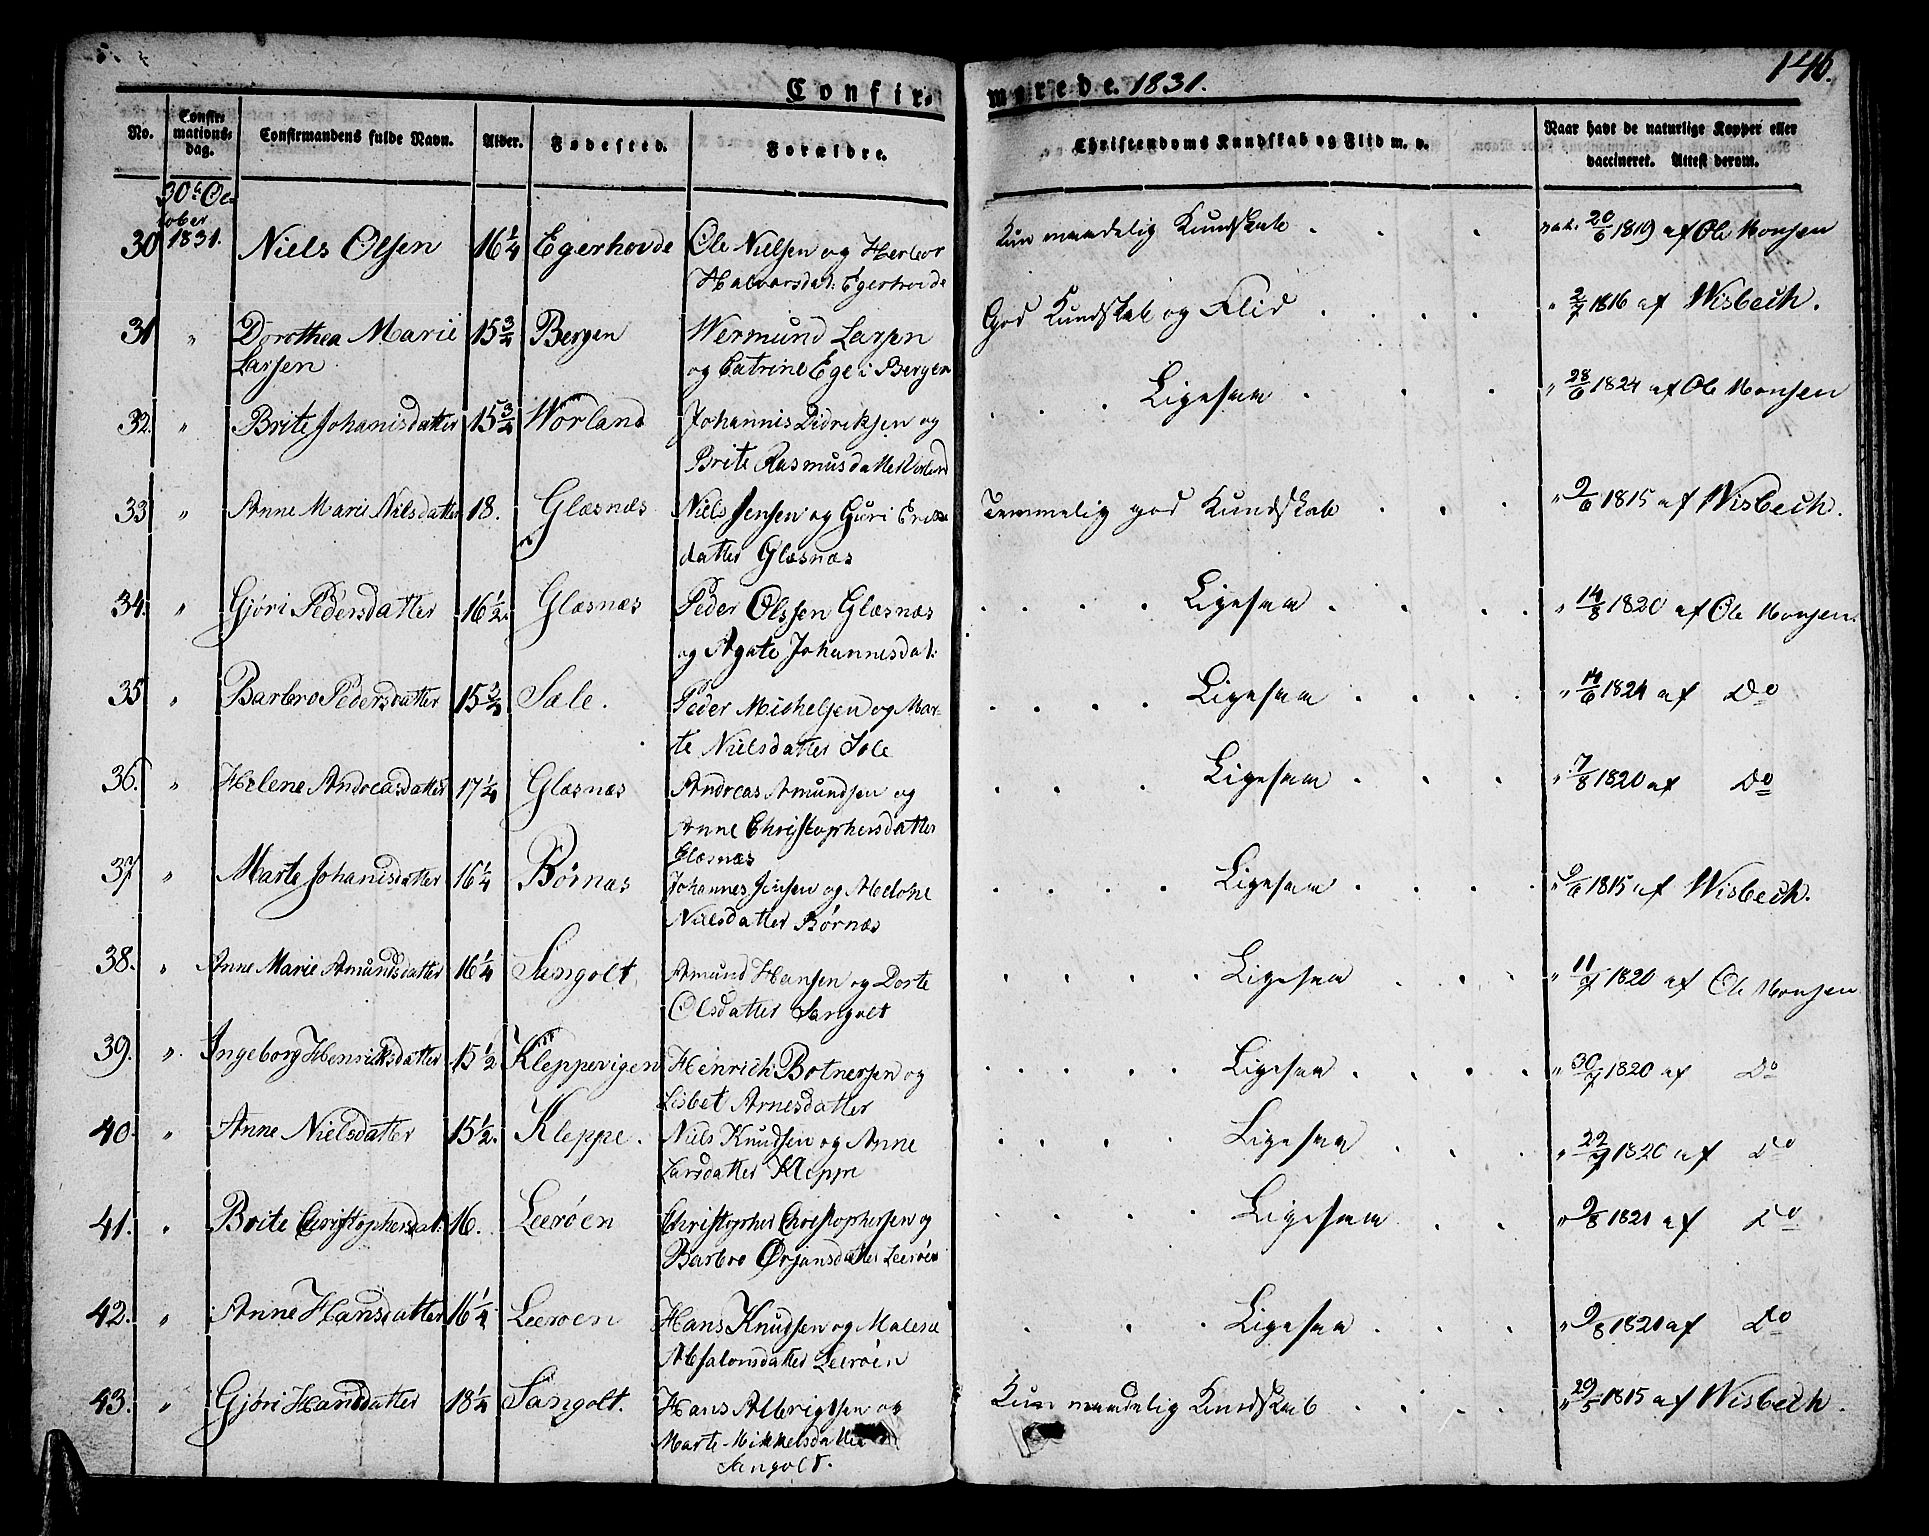 146.
Confirmerede. 1831.
No.
Confirmationsdag.
Confirmandens fulde Navn.
Alder.
Fødested.
Forældre.
Christendoms Kundskab og Flid m. v.
Naar havt de naturlige Kopper eller vaccineret. Attest derom.
30te October 1831.
30 Niels Olsen 16 1/4 Egerhovde Ole Nielsen og Herbor Kun maadelig Kundskab . . . vak. 20/6 1819 af Ole Monsen
Halvarsdat: Egerhovde
31 " Dorothea Marie 15 3/4 Bergen Wermund Larsen God Kundskab og Flid . . . . " 2/7 1816 af Wisbech.
Larsen og Catrine Ege i Bergen
32. " Brite Johanisdatter 15 3/4 Worland Johannis Didriksen og . . . Ligesaa . . . " 28/6 1824 af Ole Monsen
Brite Rasmusdatter Vorland
33 " Anne Marie Nilsdatter 18. Glæsnæs Niels Jensen og Guri Temmelig god Kundskab . . . " 9/6 1815 af Wisbech.
datter Glæsnæs
34. " Gjøri Pedersdatter 16 1/2. Glæsnæs Peder Olssen Glæsnæs . . . . Ligesaa . . . " 14/8 1820 af Ole Monsen.
og Agate Johannesdat:
35 " Barbro Pedersdatter 15 3/4 Sæle. Peder Michelsen og Mar- . . . . Ligesaa . . . . " 14/6 1824 af Do
te Nielsdatter Sole
36. " Helene Andreasdatter 17 1/4 Glæsnæs Andreas Amundsen og . . . Ligesaa . . . " 7/8 1820 af Do
Anne Christophersdatter
Glæsnæs
37 " Marte Johanisdatter 16 1/4 Børnæs Johannes Jensen og Medone . . . . Ligesaa . . . . " 9/6 1815 af Wisbech.
Nielsdatter Børnæs
38. " Anne Marie Amundsdatter 16 1/4 Sangolt Amund Hansen og Dorte . . . . Ligesaa . . . " 11/7 1820 af Ole Monsen
Olsdatter Sangolt
39. " Ingeborg Henriksdatter 15 1/2 Kleppevigen Heinrich Botnersen og . . . . . Ligesaa . . . . " 30/7 1820 af Do
Lisbet Arnesdatter
40. " Anne Nielsdatter 15 1/2. Kleppe. Niels Knudsen og Anne . . . . Ligesaa . . . " 22/7 1820 af Do
Larsdatter Kleppe
41. " Brite Christophersdat: 16. Leerøen Christopher Christophersen og . . . . Ligesaa . . " 9/8 1821 af Do
Barbro Ørjansdatter Leerøen
42. " Anne Hansdatter 16 1/4 Leerøen Hans Knudsen og Malene . . . Ligesaa . . . " 9/8 1821 af Do
Absalonsdatter Leerøen
43. " Gjøri Hansdatter 18 1/4 Sangolt. Hans Albrigtsen og Kun maadelig Kundskab . . . . " 29/5 1815 af Wisbech.
Marte Mikkelsdatter
Sangolt.